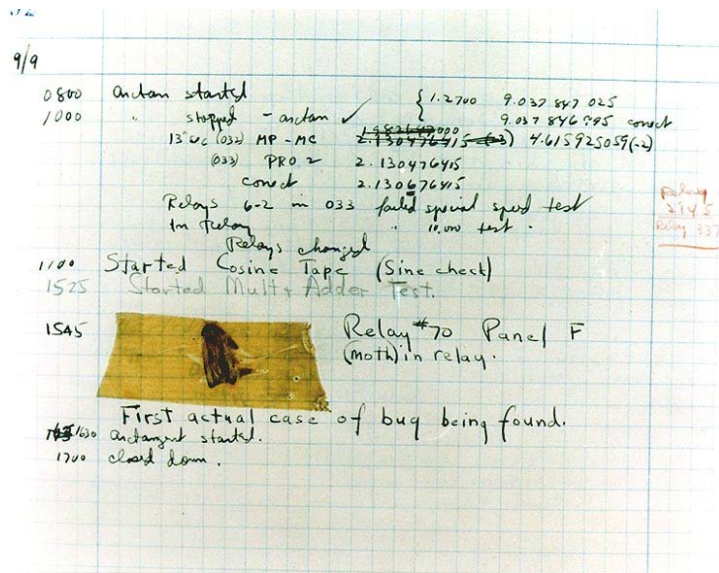 9/9
0800 antan started { 1.2700 9.037 847 025
1000 " stopped - antan ✓ 9.037 846 995 conect
13"uc (032) MP - MC 2.130476415 (-3) 4.615925059(-2)
(033) PRO 2 2.130476415
conect 2.130676415
Relays 6-2 in 033 failed special speed test
In Relay " 11,000 test.
Relays changed
Relay
2145
Relay 337
1100 Started Cosine Tape (Sine check)
1525 Started Mult + Adder Test.
1545 Relay #70 Panel F
(moth) in relay.
First actual case of bug being found.
1630 antangent started.
1700 closed down.